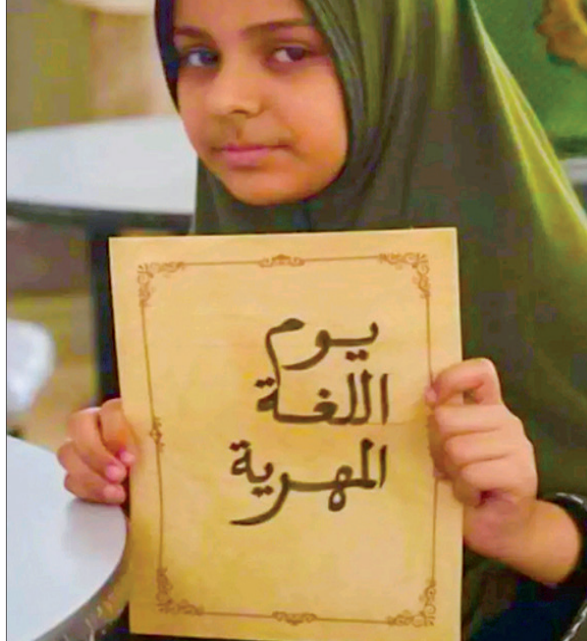 يوم
اللغة
المهرية